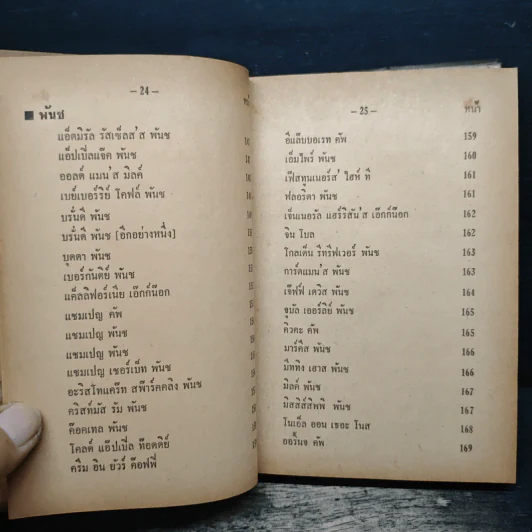 – 24 –
■ พันช
แอ็ดมิรัล รัสเซ็ลส'ส พันช
แอ็ปเปิ้ลแจ๊ค พันช
ออลด์ แมน'ส มิลค์
เบย์เบอร์รี่ย์ โคฟล์ พันช
บรั่นดี พันช
บรั่นดี พันช (อีกอย่างหนึ่ง)
บุดดา พันช
เบอร์กันดีย์ พันช
แค็ลลิฟอร์เนีย เอ๊กก์น๊อก
แชมเปญ คัพ
แชมเปญ พันช
แชมเปญ พันช
แชมเปญ เชอร์เบ็ท พันช
อะริสโทแคร๊ท สพ๊าร์คคลิง พันช
คริสท์มัส รัม พันช
ค๊อคเทล พันช
โคลด์ แอ๊ปเปิ้ล ท๊อดดีย์
ครีม อิน ยัวร์ ค๊อฟฟี่
– 25 –
หน้า
อีแล๊บบอเรท คัพ 159
เอ็มไพร์ พันช 160
เฟ๊สทูนเนอร์ส' ไฮท์ ที 161
ฟลอริดา พันช 161
เจ็นเนอรัล แฮร์ริสัน'ส เอ๊กก์น๊อก 162
จิน โบล 162
โกลเด็น รีทรีฟเวอร์ พันช 163
การ์ดแมน'ส พันช 163
เจ๊ฟฟ์ เดวิส พันช 164
จูบัล เออร์ลีย์ พันช 165
คิวคะ คัพ 165
มาร์คีส พันช 166
มีททิง เฮาส พันช 166
มิลค์ พันช 167
มิสสิส์สิพพิ พันช 167
โนเอ็ล ออน เธอะ โนส 168
ออร์้นจ คัพ 169